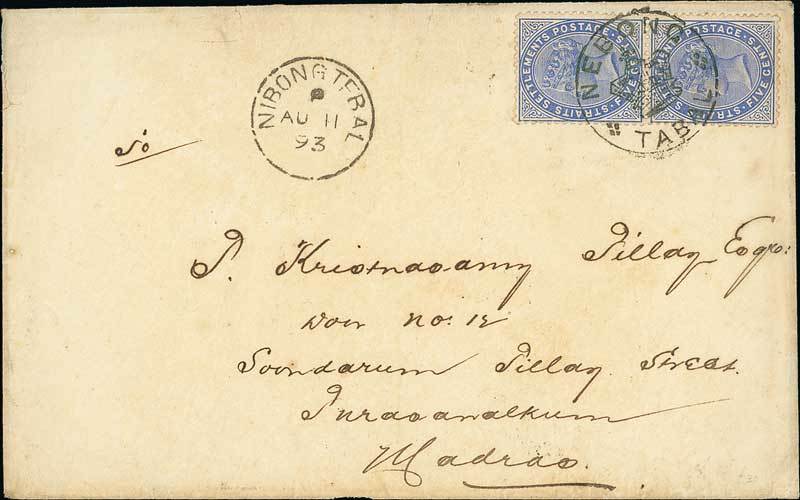 STRAITS SETTLEMENTS POSTAGE · FIVE CENTS
STRAITS SETTLEMENTS POSTAGE · FIVE CENTS
NEBONG TABAL
NIBONG TEBAL
AU 11
93
To
P. Kristnasamy Pillay Esqr:
Door No: 12
Soondarum Pillay Street.
Purasawalkum
Madras.